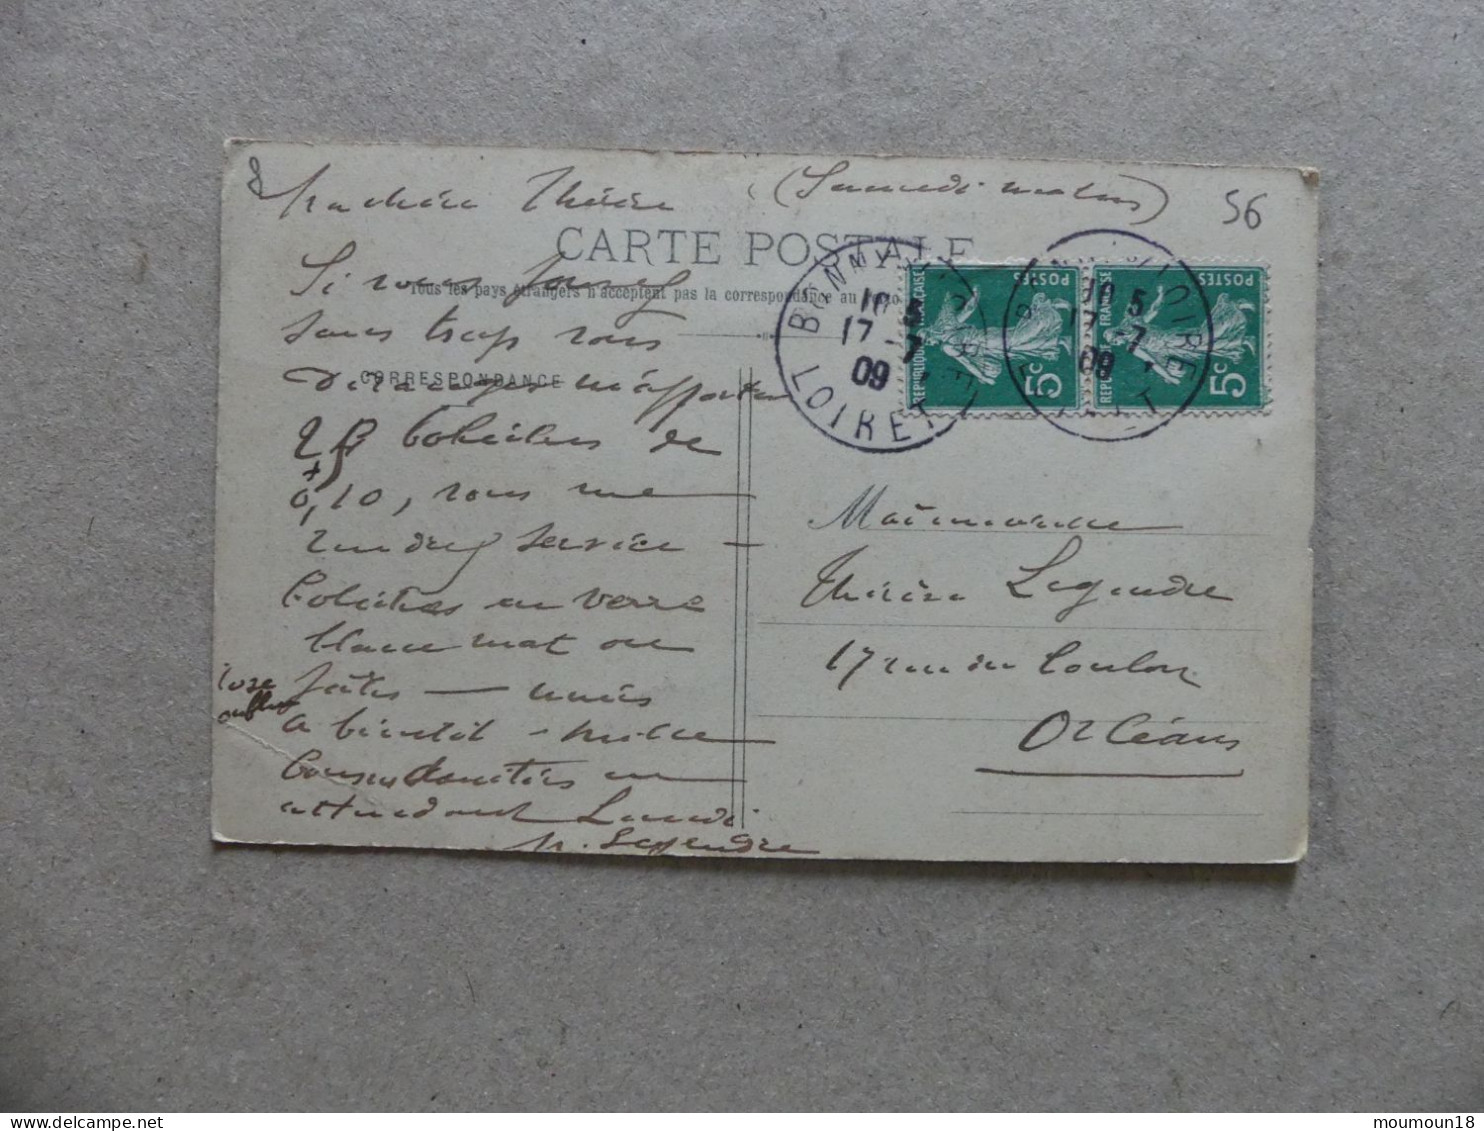 8
Ma chère Thérèse (Samedi matin)
56
CARTE POSTALE
Si vous
Tous les pays étrangers n'acceptent pas la correspondance au
sans trop vous
CORRESPONDANCE
déranger m'apporter
25 bobèches de
0,10, vous me
rendrez service —
bobèches en verre
blanc mat ou
— mais
à bientôt - mille
en
attendant Lundi
Legendre
BONNY-S-LOIRE
10 5
17 -7
09
LOIRET
BONNY-S-LOIRE
10 5
17 -7
09
LOIRET
REPUBLIQUE FRANÇAISE
POSTES
5c
REPUBLIQUE FRANÇAISE
POSTES
5c
Mademoiselle
Thérèse Legendre
17 rue du Coulon
Orléans
delcampe.net
moumoun18